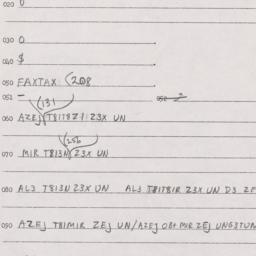 020 0
030 0
040 $
050 FAXTAX (208
051 –
(131
060 AZEJ T8118Z1 Z3X UN
(256
070 MIR T813N Z3X UN
080 AL3 T813N Z3X UN AL3 T8178IR Z3X UN D3 ZF
090 AZEJ T81MIR ZEJ UN/AZEJ OBT MIR ZEJ UNG3TUN